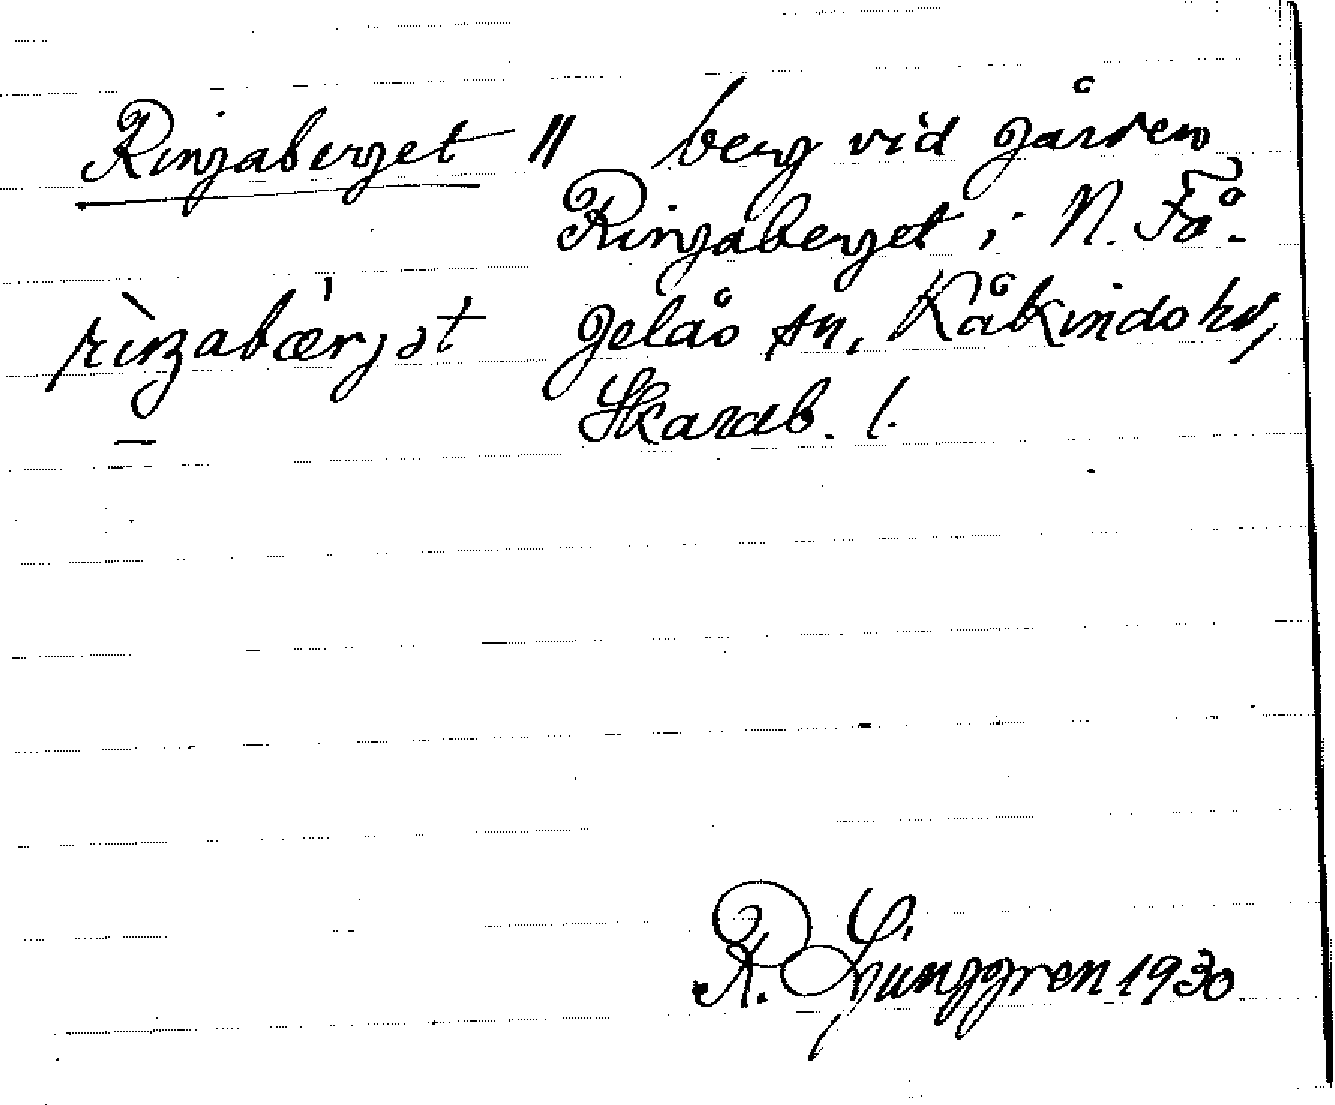 Ringaberget // berg vid gården
Ringaberget i N. Få-
gelås sn, Kåkinds hd,
Skarab. l.
R. Ljunggren 1930